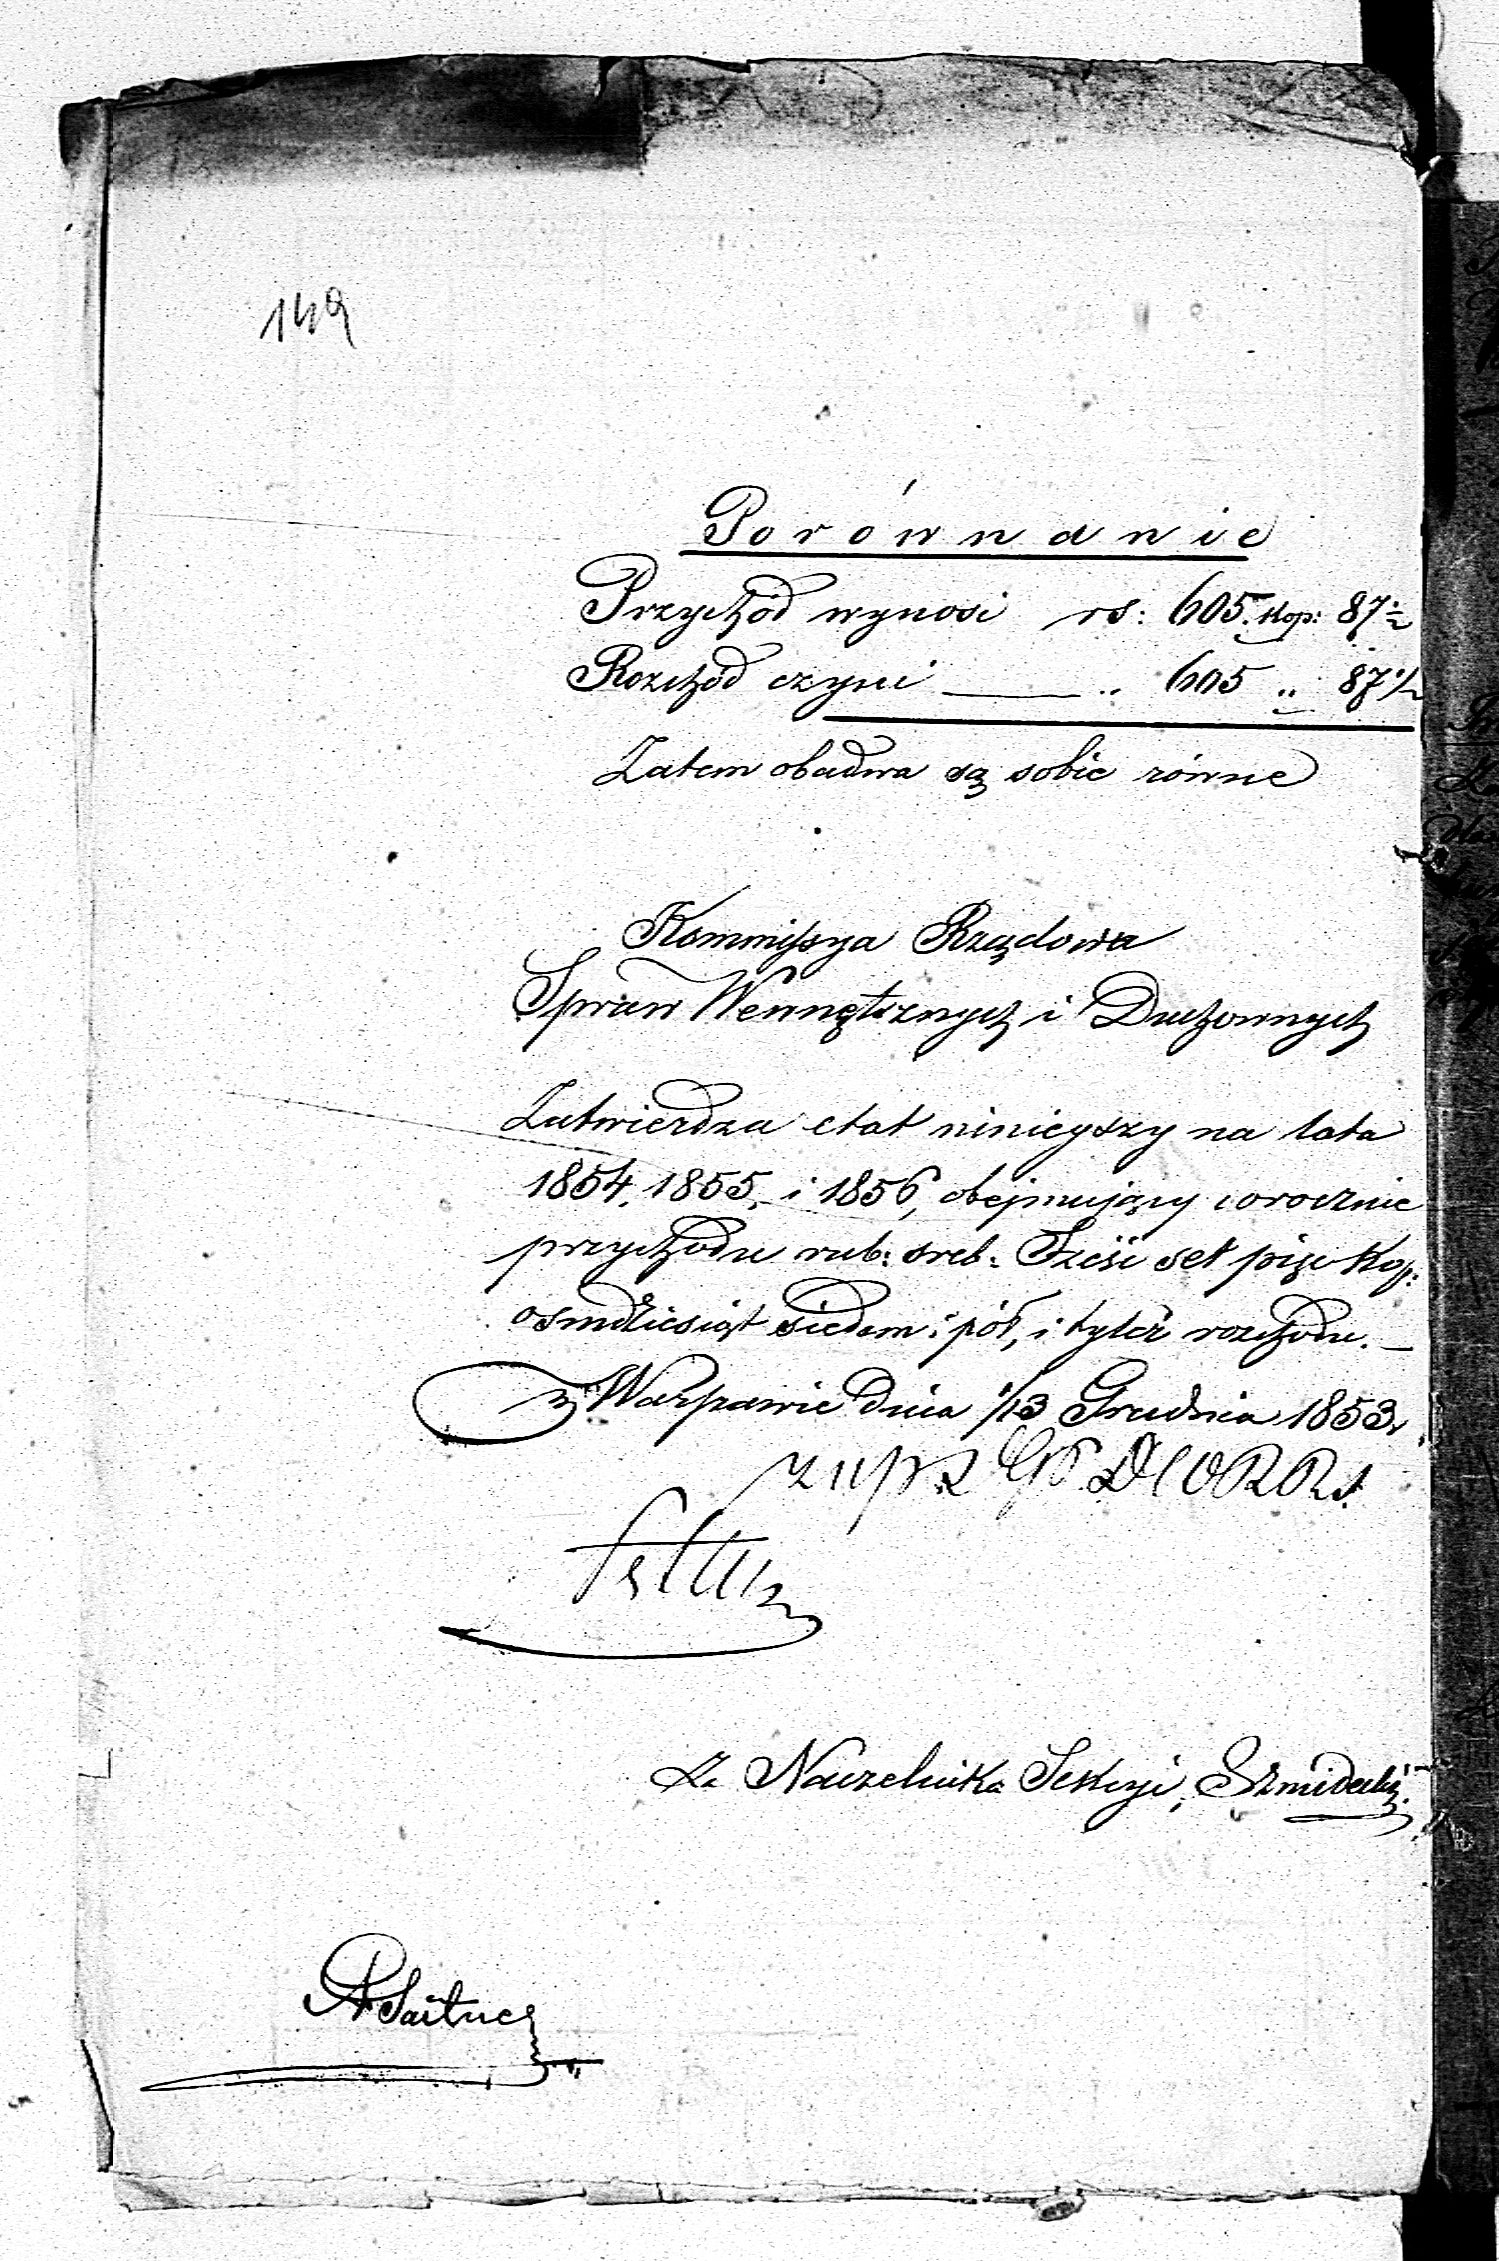 149
Porównanie
Przychód wynosi rs: 605. kop: 87½
Rozchód czyni —— „ 605 „ 87½
Zatem obadwa są sobie równe
Kommissya Rządowa
Spraw Wewnętrznych i Duchownych
Zatwierdza etat ninieyszy na lata
1854, 1855, i 1856, obejmujący corocznie
przychodu rub: sreb: Sześć set pięć kop:
osmdziesiąt siedem i pół, i tyleż rozchodu. —
w Warszawie dnia 1/13 Grudnia 1853 r.
Za Naczelnika Sekcyi,